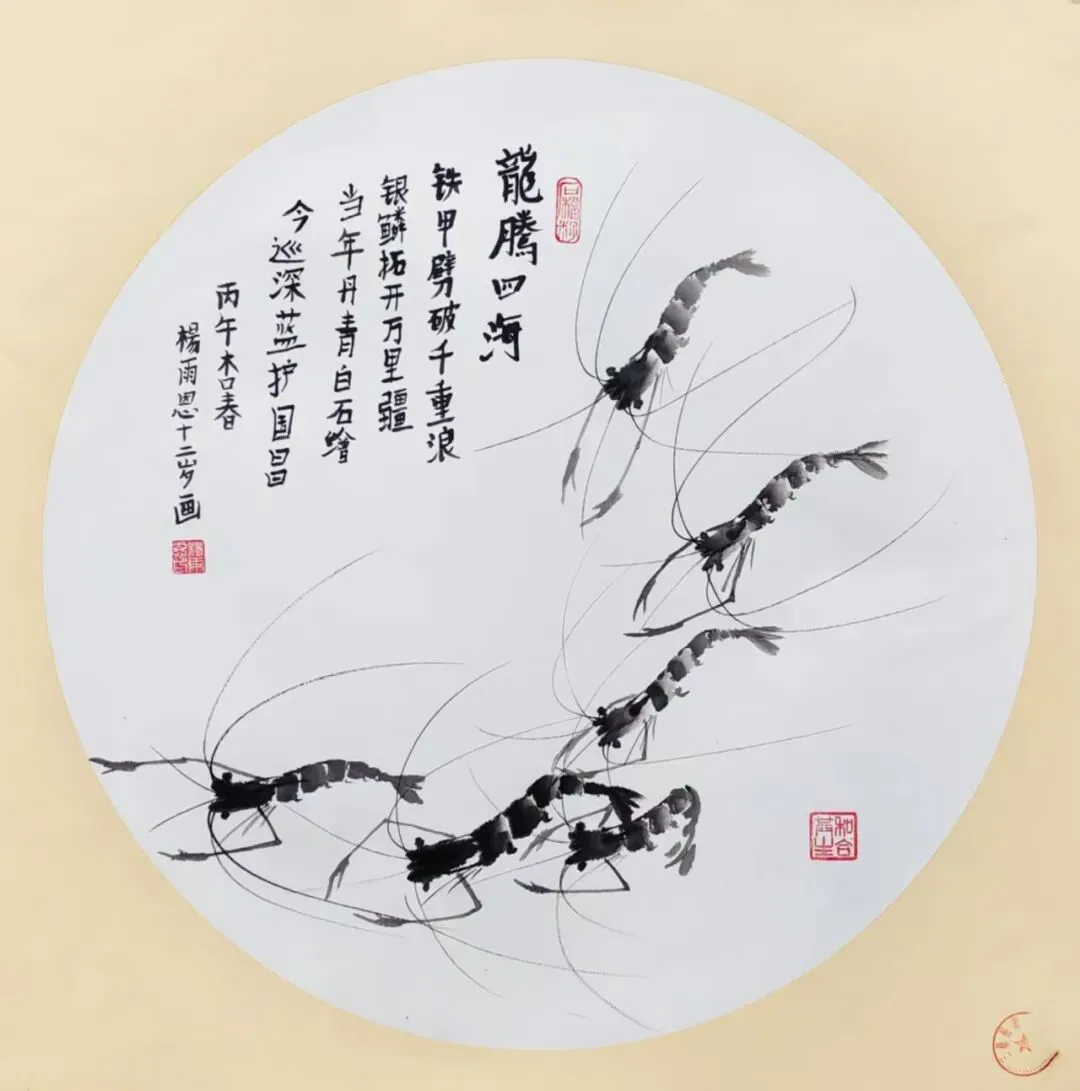 龍騰四海
铁甲劈破千重浪
银鳞拓开万里疆
当年丹青白石繪
今巡深蓝护国昌
丙午杏春
楊雨恩十二岁画